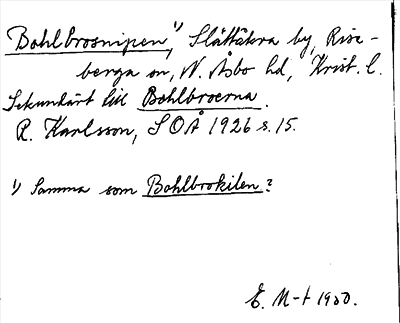 Bohlbrosnipen,¹⁾ Slättåkra by, Rise-
berga sn, N. Åsbo hd, Krist. l.
Sekundärt till Bohlbroerna.
R. Karlsson, SOÅ 1926 s. 15.
¹⁾ Samma som Bohlbrokilen?
E. M-t 1930.